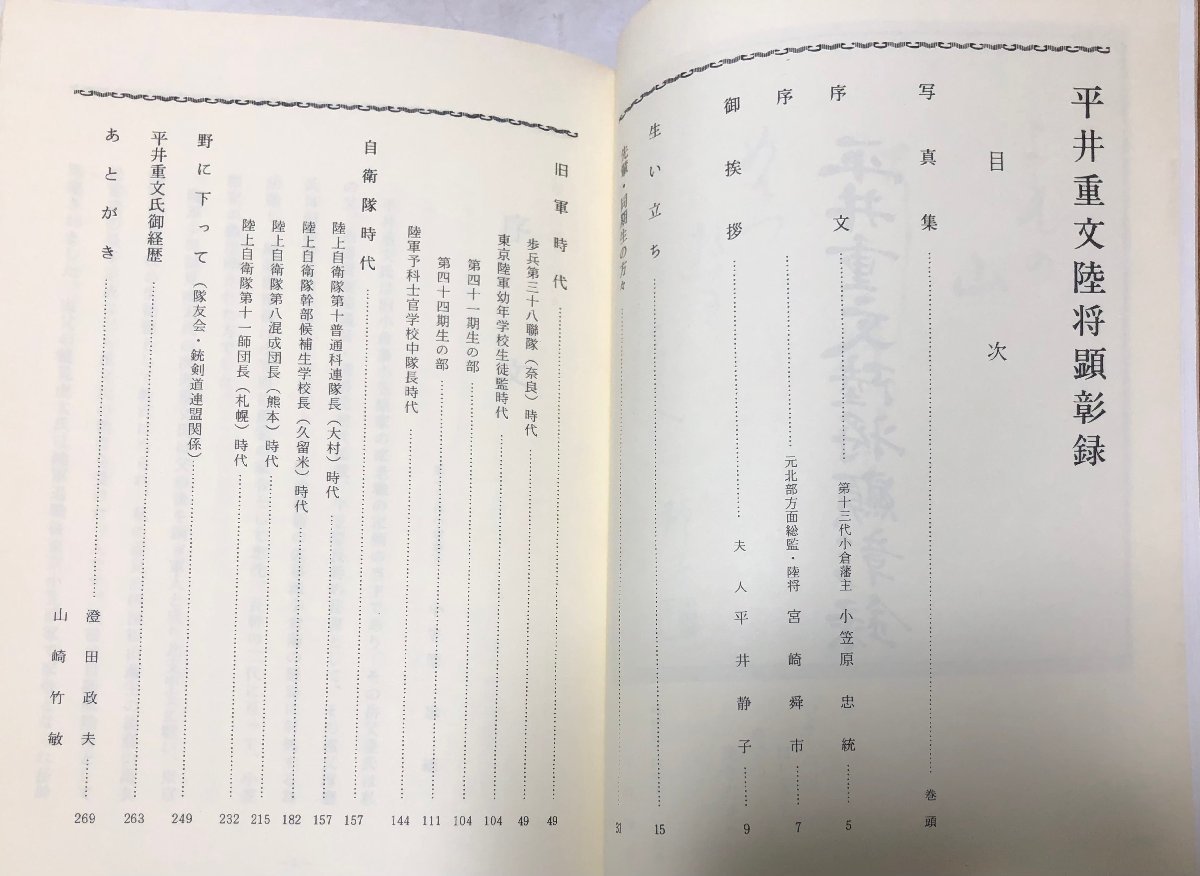 平井重文陸将顕彰録
目次
写真集……巻頭
序文……第十三代小倉藩主 小笠原忠統……5
序……元北部方面総監・陸将 宮崎舜市……7
御挨拶……夫人 平井静子……9
生い立ち……15
先輩・同期生の方々……31
旧軍時代……49
歩兵第三十八聯隊（奈良）時代……49
東京陸軍幼年学校生徒監時代……104
第四十一期生の部……104
第四十四期生の部……111
陸軍予科士官学校中隊長時代……144
自衛隊時代……157
陸上自衛隊第十普通科連隊長（大村）時代……157
陸上自衛隊幹部候補生学校長（久留米）時代……182
陸上自衛隊第八混成団長（熊本）時代……215
陸上自衛隊第十一師団長（札幌）時代……232
野に下って（隊友会・銃剣道連盟関係）……249
平井重文氏御経歴……263
あとがき……澄田政夫……269
山崎竹敏